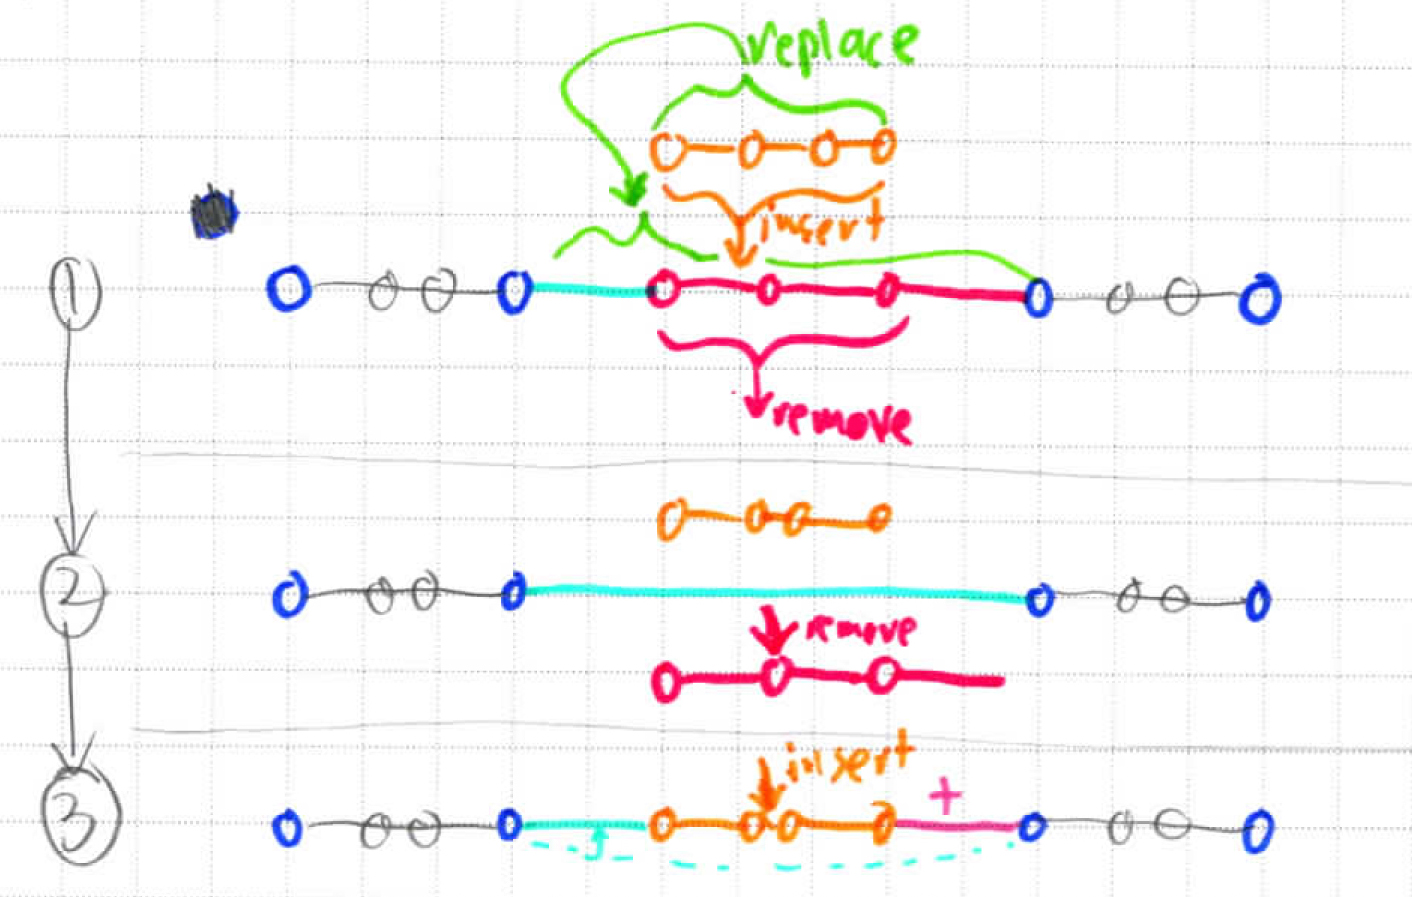 replace
insert
1
remove
2
remove
insert
+
3